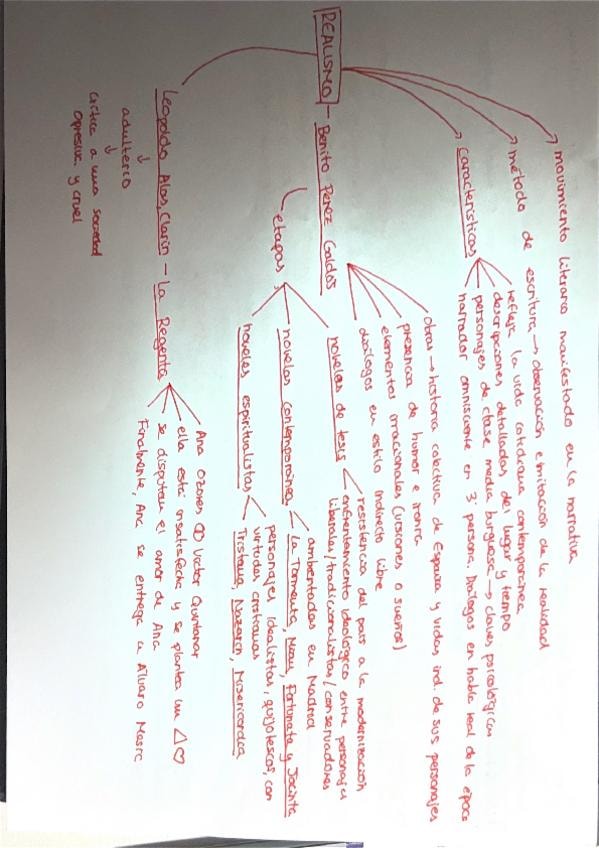 movimiento literario manifestado en la narrativa
método de escritura → observación e imitación de la realidad
características
refleja la vida cotidiana contemporánea
descripciones detalladas del lugar y tiempo
personajes de clase media burguesa → claves psicológicas
narrador omnisciente en 3ª persona. Diálogos en habla real de la época
REALISMO - Benito Pérez Galdós
obras → historia colectiva de España y vidas ind. de sus personajes
presencia de humor e ironía
elementos irracionales (visiones o sueños)
diálogos en estilo indirecto libre
etapas
novelas de tesis
resistencia del país a la modernización
enfrentamiento ideológico entre personajes
liberales/tradicionalistas/conservadores
novelas contemporánea
ambientadas en Madrid
La Tormenta, Miau, Fortunata y Jacinta
novelas espiritualistas
personajes idealistas, quijotescos, con
virtudes cristianas
Tristana, Nazarín, Misericordia
Leopoldo Alas Clarín - La Regenta
Ana Ozores Víctor Quintanar
ella está insatisfecha y se plantea un △♡
se disputan el amor de Ana
Finalmente, Ana se entrega a Álvaro
↓
adulterio
↓
crítica a una sociedad
opresiva y cruel